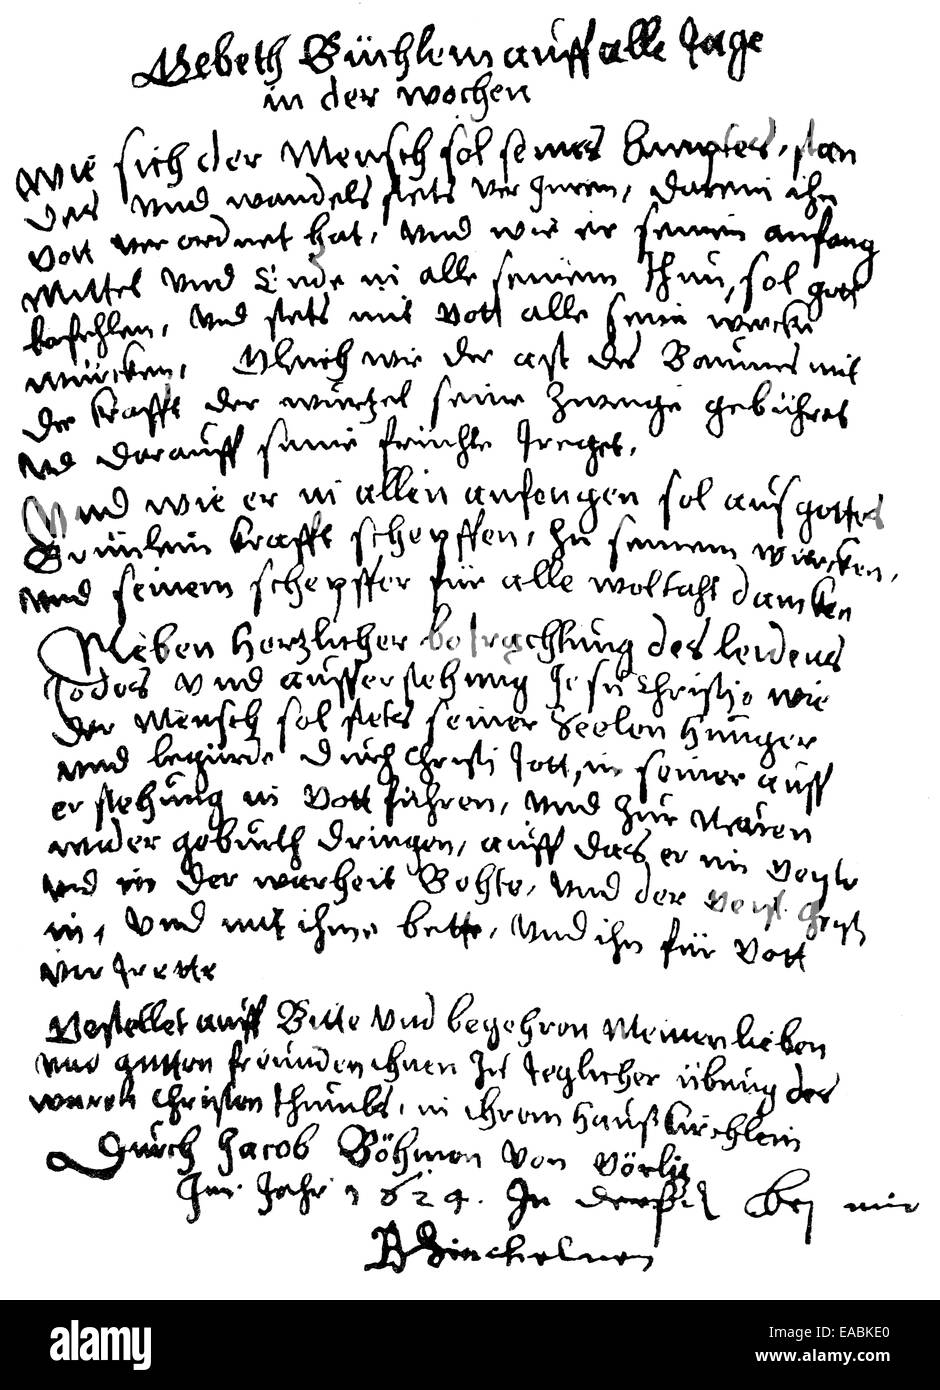 Gebeth Büchlein auff alle Tage
in der wochen
Wie sich der Mensch sol seines Amptes, stan
des und wandels stets er Inren, darein ihn
Gott ver ordnet hat, und wie er seinen anfang
Mittel und Ende in alle seinem thun, sol gott
befehlen, und stets mit Gott alle seine wercke
würcken, Gleich wie der ast des Baumes mit
der krafft der würtzel seine Zweige gebühret
und darauff seine früchte treget.
Und wie er in allen anfengen sol aus gottes
Brünlein krafft schepffen, zu seinem wircken,
und seinem schepffer für alle woltaht dancken
Neben hertzlicher betrachtung des leidens
Todes und aufferstehung Jesu Christi, wie
der Mensch sol stets seiner Seelen hunger
und begirde durch Christi Tott, in seiner auff
er stehung in Gott führen, und zur Neuen
wider geburth dringen, auff das er im geiste
und in der warheit Behte, und der geist Christi
in, und mit ihme bette, und ihn für Gott
ver trette
Gestellet auff Bitte und begehren Meiner lieben
und gutten freunden ihnen zu teglicher übung des
waren Christen thumbs, in ihrem hauß kirchlein
Durch Jacob Böhmen von Görlitz
Im Jahr 1624. In
bei mir
alamy
alamy
Image ID: EABKE0
www.alamy.com